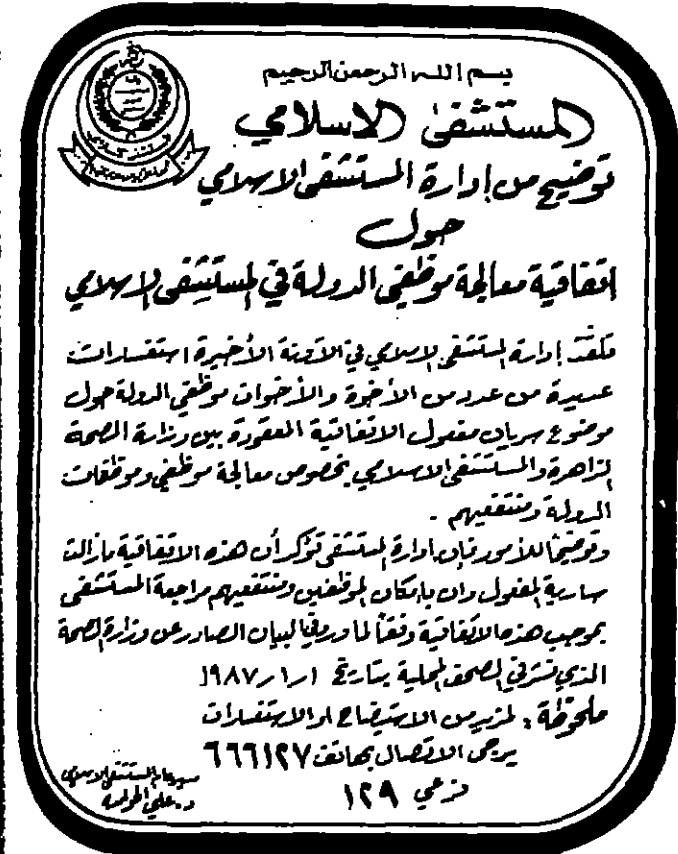 بسم الله الرحمن الرحيم
المستشفى الاسلامي
توضيح من إدارة المستشفى الاسلامي
حول
اتفاقية معالجة موظفي الدولة في المستشفى الاسلامي
تلقت إدارة المستشفى الاسلامي في الآونة الأخيرة استفسارات
عديدة من عدد من الأخوة والأخوات موظفي الدولة حول
موضوع سريان مفعول الاتفاقية المعقودة بين وزارة الصحة
الزاهرة والمستشفى الاسلامي بخصوص معالجة موظفي وموظفات
الدولة ومنتفعيهم .
وتوضيحاً للأمور فإن ادارة المستشفى تؤكد أن هذه الاتفاقية مازالت
سارية المفعول وان بإمكان الموظفين ومنتفعيهم مراجعة المستشفى
بموجب هذه الاتفاقية وفقاً لما ورد في البيان الصادر عن وزارة الصحة
الذي نشر في الصحف المحلية بتاريخ ١ر١ر١٩٨٧
ملحوظة : لمزيد من الاستيضاح او الاستفسارات
يرجى الاتصال بهاتف ٦٦٦١٢٧
فرعي ١٢٩
مدير عام المستشفى الاسلامي
د. علي الحوامدة